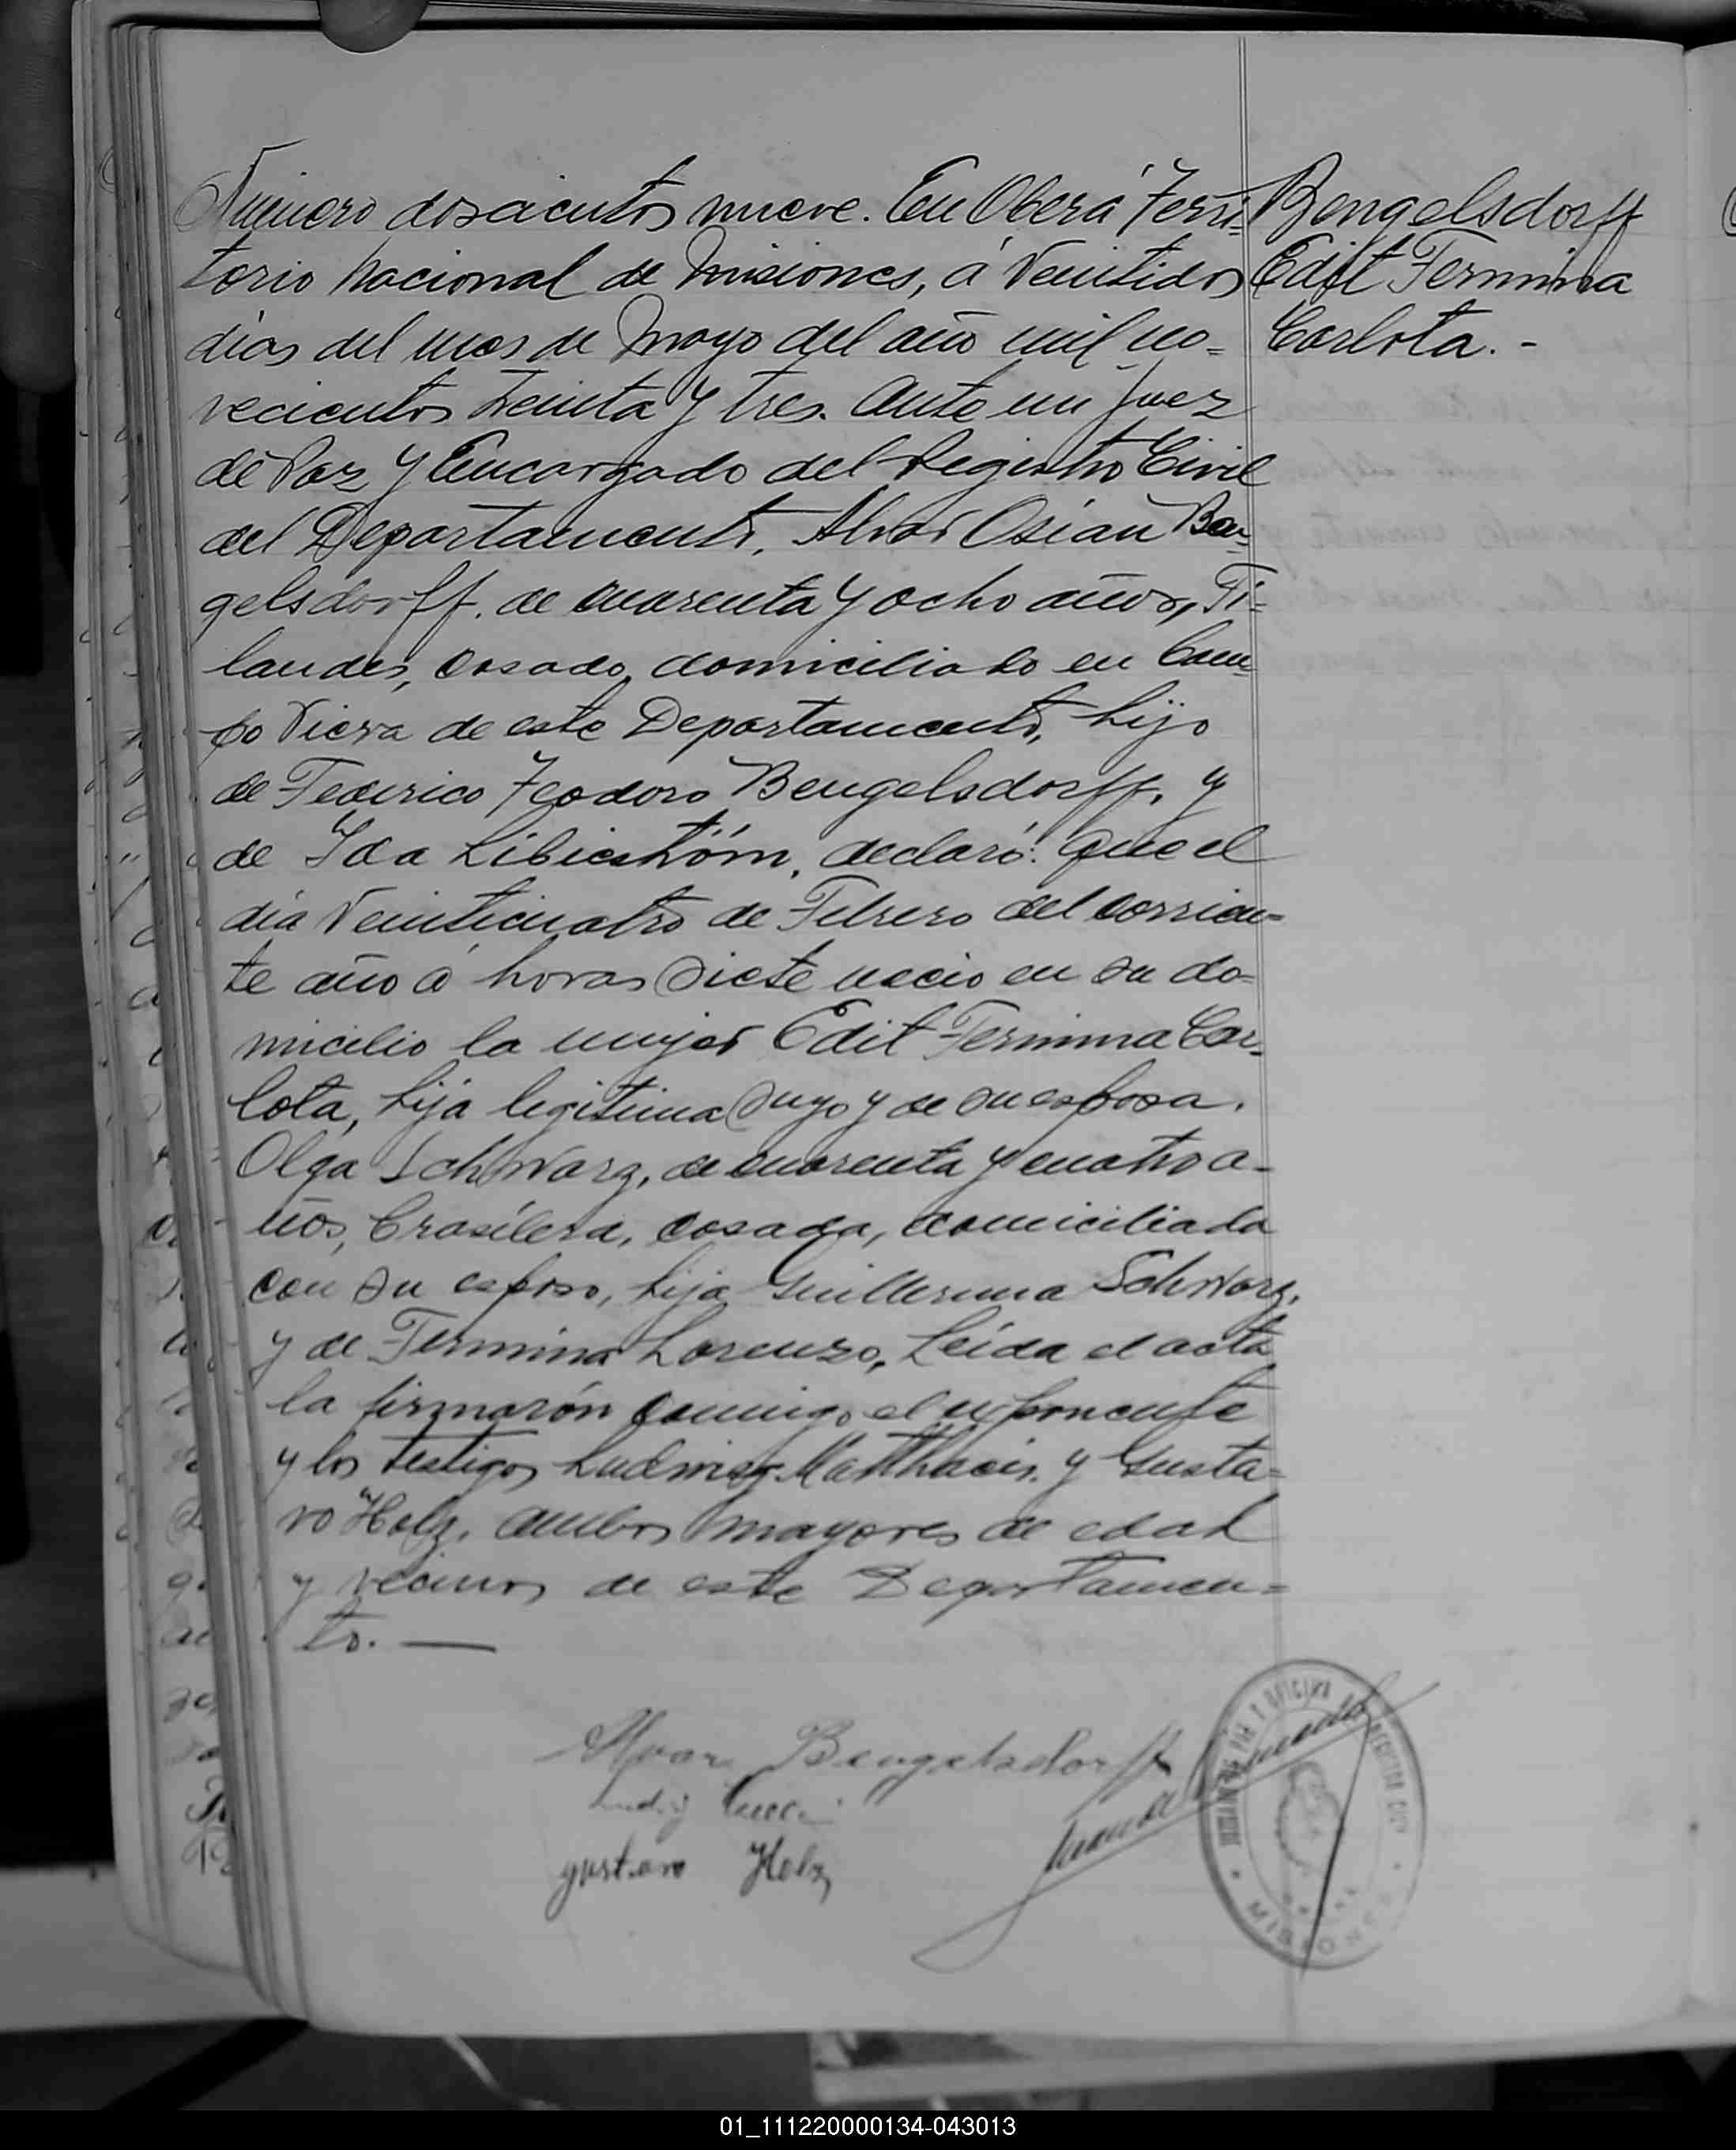 Número doscientos nueve. En Oberá Terri=
torio Nacional de Misiones, á Veintidos
dias del mes de Mayo del año mil no=
vecientos treinta y tres. Ante mi Juez
de Paz y Encargado del Registro Civil
del Departamento, Alvar Osian Ben=
gelsdorff, de cuarenta y ocho años, Fi=
landes, casado, domiciliado en Cam=
po Viera de este Departamento, hijo
de Federico Teodoro Bengelsdorff, y
de Ida declaró: Que el
dia Veinticuatro de Febrero del corrien=
te año á horas siete nacio en su do=
micilio la mujer Edit Fermina Car=
lota, hija legitima suya y de su esposa.
Olga Schwarz, de cuarenta y cuatro a=
ños, brasilera, casada, domiciliada
con su esposo, hija Guillermina Schwarz,
y de Fermina Lorenzo, Leida el acta
la firmarón conmigo el exponente
y los testigos Ludwig y Gusta=
vo Holz, ambos mayores de edad
y vecinos de este Departamen=
to. —
Bengelsdorff
Edit Fermina
Carlota. -
Alvar Bengelsdorff
gustavo Holz
OFICINA REGISTRO CIVIL
MISIONES
01_111220000134-043013